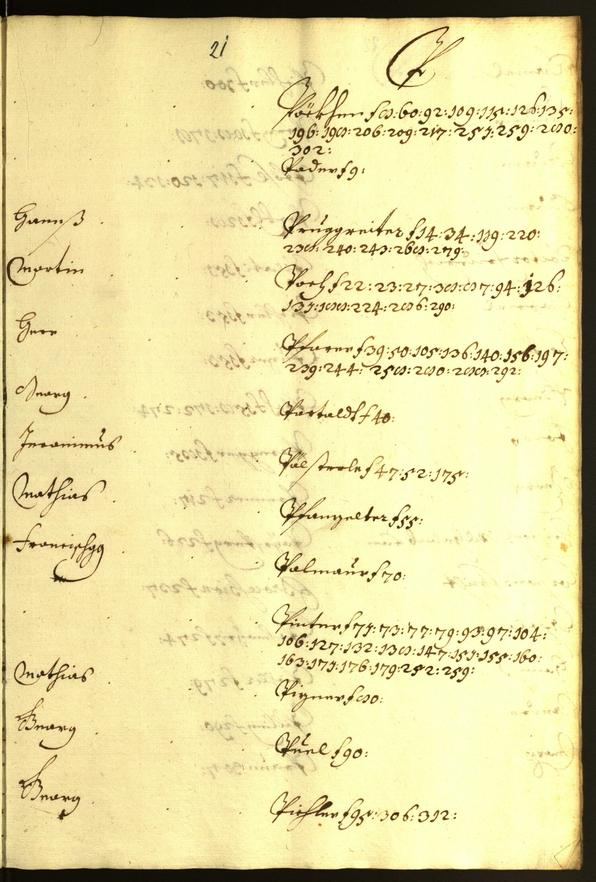 21
P
Pöckhen f 8: 60: 92: 109: 115: 126: 135:
196: 198: 206: 209: 217: 251: 259: 280:
302:
Pader f 9:
Hannß Pruggreiter f 14: 34: 119: 220:
238: 240: 243: 268: 279:
Martin Poch f 22: 23: 27: 38: 87: 94: 126:
131: 188: 224: 286: 290:
Herr Pfarer f 39: 50: 105: 136: 140: 156: 197:
239: 244: 258: 280: 288: 292:
Georg Partaldt f 40:
Jeronimus Pälstrole f 47: 52: 175:
Mathias Pfanzelter f 55:
Francischgg Palmaur f 70:
Pinter f 71: 73: 77: 79: 93: 97: 104:
106: 127: 132: 138: 147: 151: 155: 160:
163: 171: 176: 179: 252: 259:
Mathias Pigner f 80:
Georg Püel f 90:
Georg Pichler f 95: 306: 312: